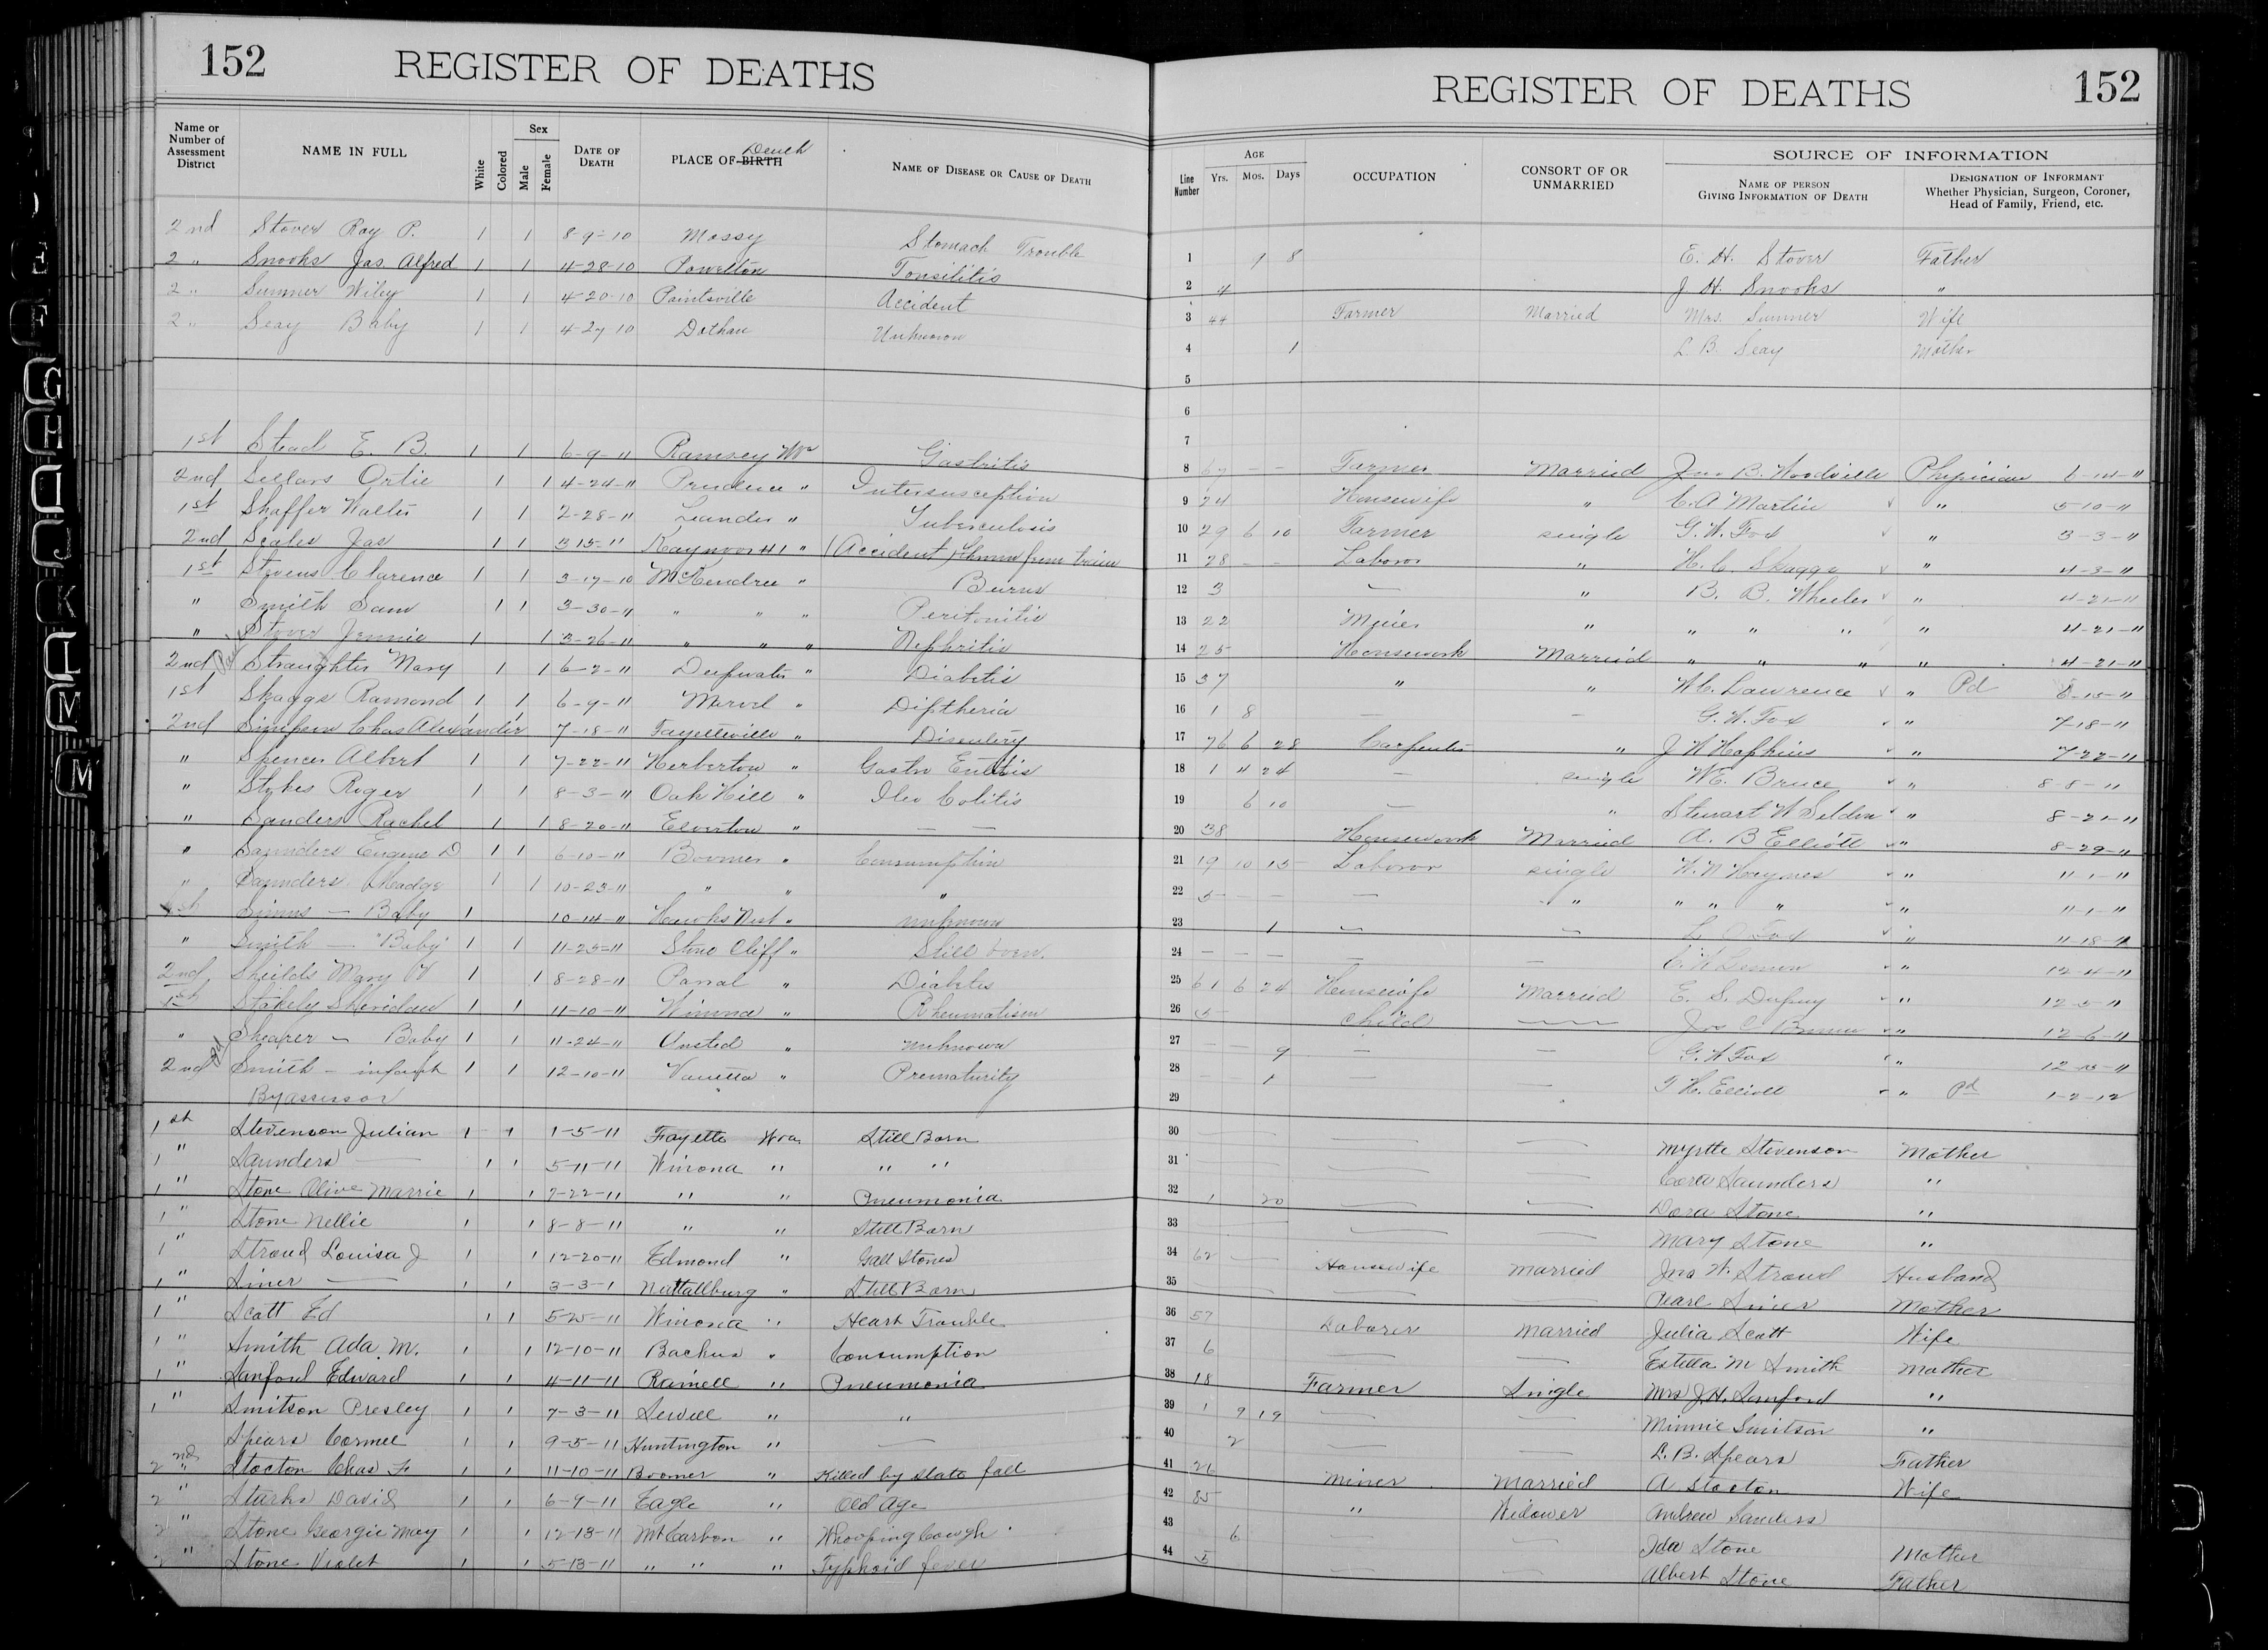 152 REGISTER OF DEATHS
Name or Number of Assessment District NAME IN FULL White Colored Sex Male Female DATE OF DEATH PLACE OF BIRTH Death NAME OF DISEASE OR CAUSE OF DEATH
2nd Stover Roy P. 1 1 8-9-10 Mossy Stomach Trouble
2 " Snooks Jas. Alfred 1 1 4-28-10 Powelton Tonsilitis
2 " Sumner Wiley 1 1 4-20-10 Paintsville Accident
2 " Seay Baby 1 1 4-27-10 Dothan Unknown
1st Stead E. B. 1 1 6-9-11 Ramsey Wva Gastritis
2nd Sellars Ortie 1 1 4-24-11 Prudence " Intersusception
1st Shaffer Walter 1 1 2-28-11 Landes " Tuberculosis
2nd Scales Jas 1 1 3-15-11 Kaymoor #1 " (Accident) Thrown from train
1st Stevens Clarence 1 1 3-17-10 McKendree " Burns
" Smith Sam 1 1 3-30-11 " " " Peritonitis
" Stover Jennie 1 1 3-26-11 " " " Nephritis
2nd Straughter Mary 1 1 6-2-11 Deepwater " Diabetis
1st Skaggs Ramond 1 1 6-9-11 Marvel " Diptheria
2nd Simpson Chas Alexander 1 1 7-18-11 Fayetteville " Disentery
" Spencer Albert 1 1 7-22-11 Herberton " Gastro Enteritis
" Stokes Roger 1 1 8-3-11 Oak Hill " Ileo Colitis
" Sanders Rachel 1 1 8-20-11 Elverton " — —
" Saunders Eugene D 1 1 6-10-11 Boomer " Consumption
" Saunders Madge 1 1 10-23-11 " " "
1st Simms — Baby 1 10-14-11 Hawks Nest " unknown
" Smith — "Baby" 1 1 11-25-11 Stone Cliff " Still born.
2nd Sheilds Mary V 1 1 8-28-11 Parral " Diabetes
1st Stakely Sheridan 1 1 11-10-11 Winona " Rheumatism
" Shearer — Baby 1 1 11-24-11 Ansted " unknown
2nd Smith — infant 1 1 12-10-11 Vanetta " Prematurity
By assessor
1st Stevenson Julian 1 1 1-5-11 Fayette Wva Still Born
1 " Saunders — 1 1 5-11-11 Winona " " "
1 " Stone Olive Marrie 1 1 7-22-11 " " Pneumonia
1 " Stone Nellie 1 1 8-8-11 " " Still Born
1 " Stroud Louisa J 1 1 12-20-11 Edmond " Gall Stones
1 " Siner — 1 1 3-3-1 Nuttallburg " Still Born
1 " Scott Ed 1 1 5-25-11 Winona " Heart Trouble
1 " Smith Ada M. 1 1 12-10-11 Backus " Consumption
1 " Sanford Edward 1 1 4-11-11 Rainell " Pneumonia
1 " Smitson Presley 1 1 7-3-11 Sewell " "
Spears Cormel 1 1 9-5-11 Huntington " —
2nd Stocton Chas F. 1 1 11-10-11 Boomer " Killed by slate fall
2 " Starks David 1 1 6-9-11 Eagle " Old Age
2 " Stone Georgie May 1 1 12-13-11 Mt Carbon " Whooping Cough
2 " Stone Violet 1 1 5-13-11 " " " Typhoid fever
REGISTER OF DEATHS 152
Line Number AGE Yrs. Mos. Days OCCUPATION CONSORT OF OR UNMARRIED SOURCE OF INFORMATION NAME OF PERSON GIVING INFORMATION OF DEATH DESIGNATION OF INFORMANT Whether Physician, Surgeon, Coroner, Head of Family, Friend, etc.
1 9 8 E. H. Stover Father
2 4 J H. Snooks "
3 44 Farmer Married Mrs. Sumner Wife
4 1 L. B. Seay Mother
5
6
7
8 67 — — Farmer Married Jno B. Woodville Physician 6-14-11
9 24 Housewife " C. A Martin " 5-10-11
10 29 6 10 Farmer single G. W. Fox " 3-3-11
11 28 — — Labor " H. C. Skaggs " 4-3-11
12 3 — " B. B. Wheeler " 4-21-11
13 22 Miner " " " " " 4-21-11
14 25 Housework Married " " " " 4-21-11
15 37 " " W. C. Lawrence " Pd 6-15-11
16 1 8 — — G. W. Fox " 7-18-11
17 76 6 28 Carpenter " J W Hopkins " 7-22-11
18 1 11 24 — single W. E. Bruce " 8-8-11
19 6 10 — " Stewart W Selden " 8-21-11
20 38 Housework Married A. B Elliott " 8-29-11
21 19 10 15 Laboror single W. N Haynes " 11-1-11
22 5 — — — " " " " " 11-1-11
23 1 — — L. O Fox " 11-18-11
24 — — — — — " 12-4-11
25 61 6 24 Housewife Married E. S. Dupuy " 12-5-11
26 5 child — " 12-6-11
27 — — 9 — — G. W Fox " 12-15-11
28 — 1 — — T. H. Elliott " Pd 1-2-12
29
30 — — — Myrtle Stevenson Mother
31 — — — Cora Saunders "
32 1 20 — — Dora Stone "
33 — — — Mary Stone "
34 62 — — Housewife Married Jno W. Stroud Husband
35 — — — Pearl Siner Mother
36 57 Laborer Married Julia Scott Wife
37 6 — — Estella M Smith Mother
38 18 Farmer Single Mrs J. H. Sanford "
39 1 9 19 — — Minnie Smitson "
40 2 — — L. B. Spears Father
41 26 Miner Married A Stocton Wife
42 85 " Widower Andrew Sanders
43 6 — — Ida Stone Mother
44 — — Albert Stone Father